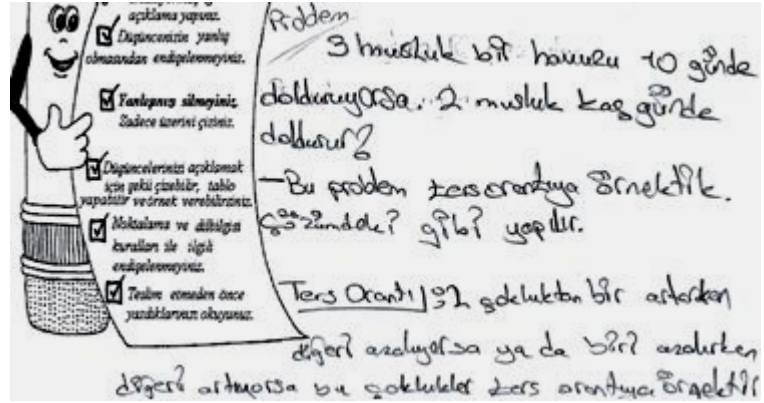 açıklama yapınız.
Düşüncenizin yanlış
olmasından endişelenmeyiniz.
Yanlışınızı silmeyiniz.
Sadece üzerini çiziniz.
Düşüncelerinizi açıklamak
için şekil çizebilir, tablo
yapabilir ve örnek verebilirsiniz.
Noktalama ve dilbilgisi
kuralları ile ilgili
endişelenmeyiniz.
Teslim etmeden önce
yazdıklarınızı okuyunuz.
Problem
3 musluk bir havuzu 10 günde
dolduruyorsa. 2 musluk kaç günde
doldurur?
-Bu problem ters orantıya örnektir.
gibi yapılır.
Ters Orantı; 2 çokluktan bir artarken
diğeri azalıyorsa ya da biri azalırken
diğeri artıyorsa bu çokluklar ters orantıya örnektir